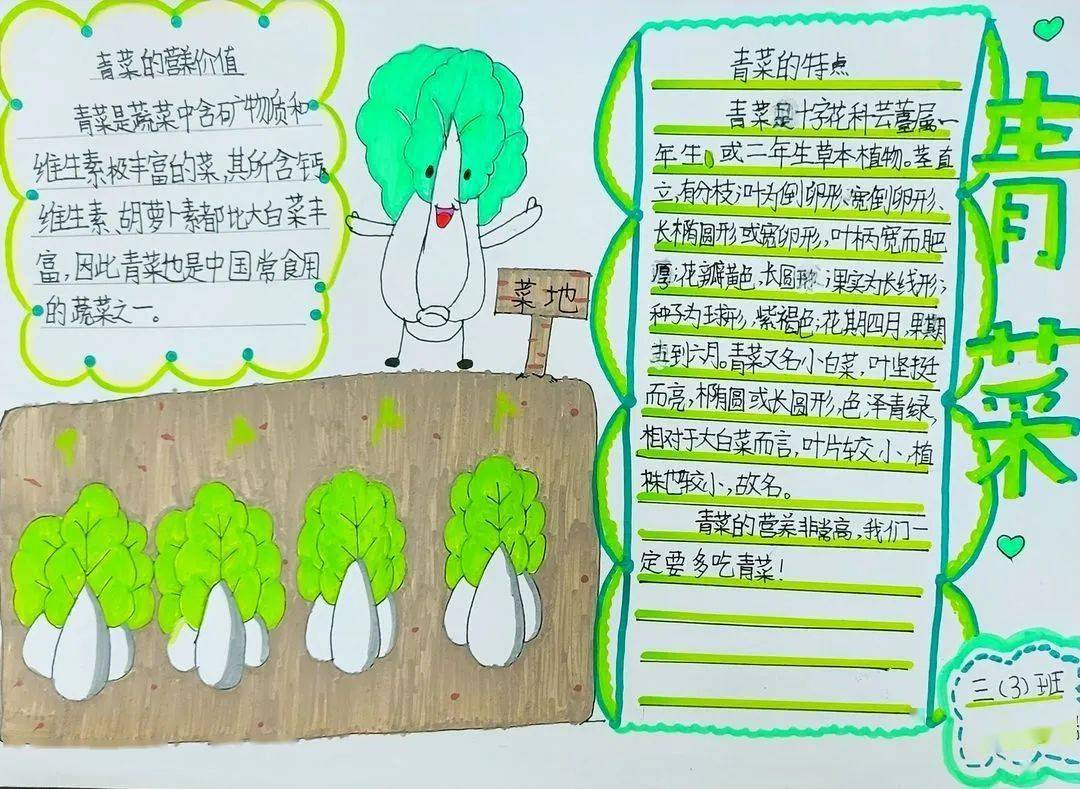 青菜的营养价值
青菜是蔬菜中含矿物质和
维生素极丰富的菜,其所含钙,
维生素、胡萝卜素都比大白菜丰
富,因此青菜也是中国常食用
的蔬菜之一。
菜地
青菜的特点
青菜是十字花科芸薹属一
年生,或二年生草本植物。茎直
立,有分枝;叶为倒卵形、宽倒卵形、
长椭圆形或宽卵形,叶柄宽而肥
厚;花瓣黄色,长圆形;果实为长线形;
种子为球形,紫褐色;花期四月,果期
五到六月。青菜又名小白菜,叶坚挺
而亮,椭圆或长圆形,色泽青绿,
相对于大白菜而言,叶片较小,植
株也较小,故名。
青菜的营养非常高,我们一
定要多吃青菜!
青菜
三(3)班